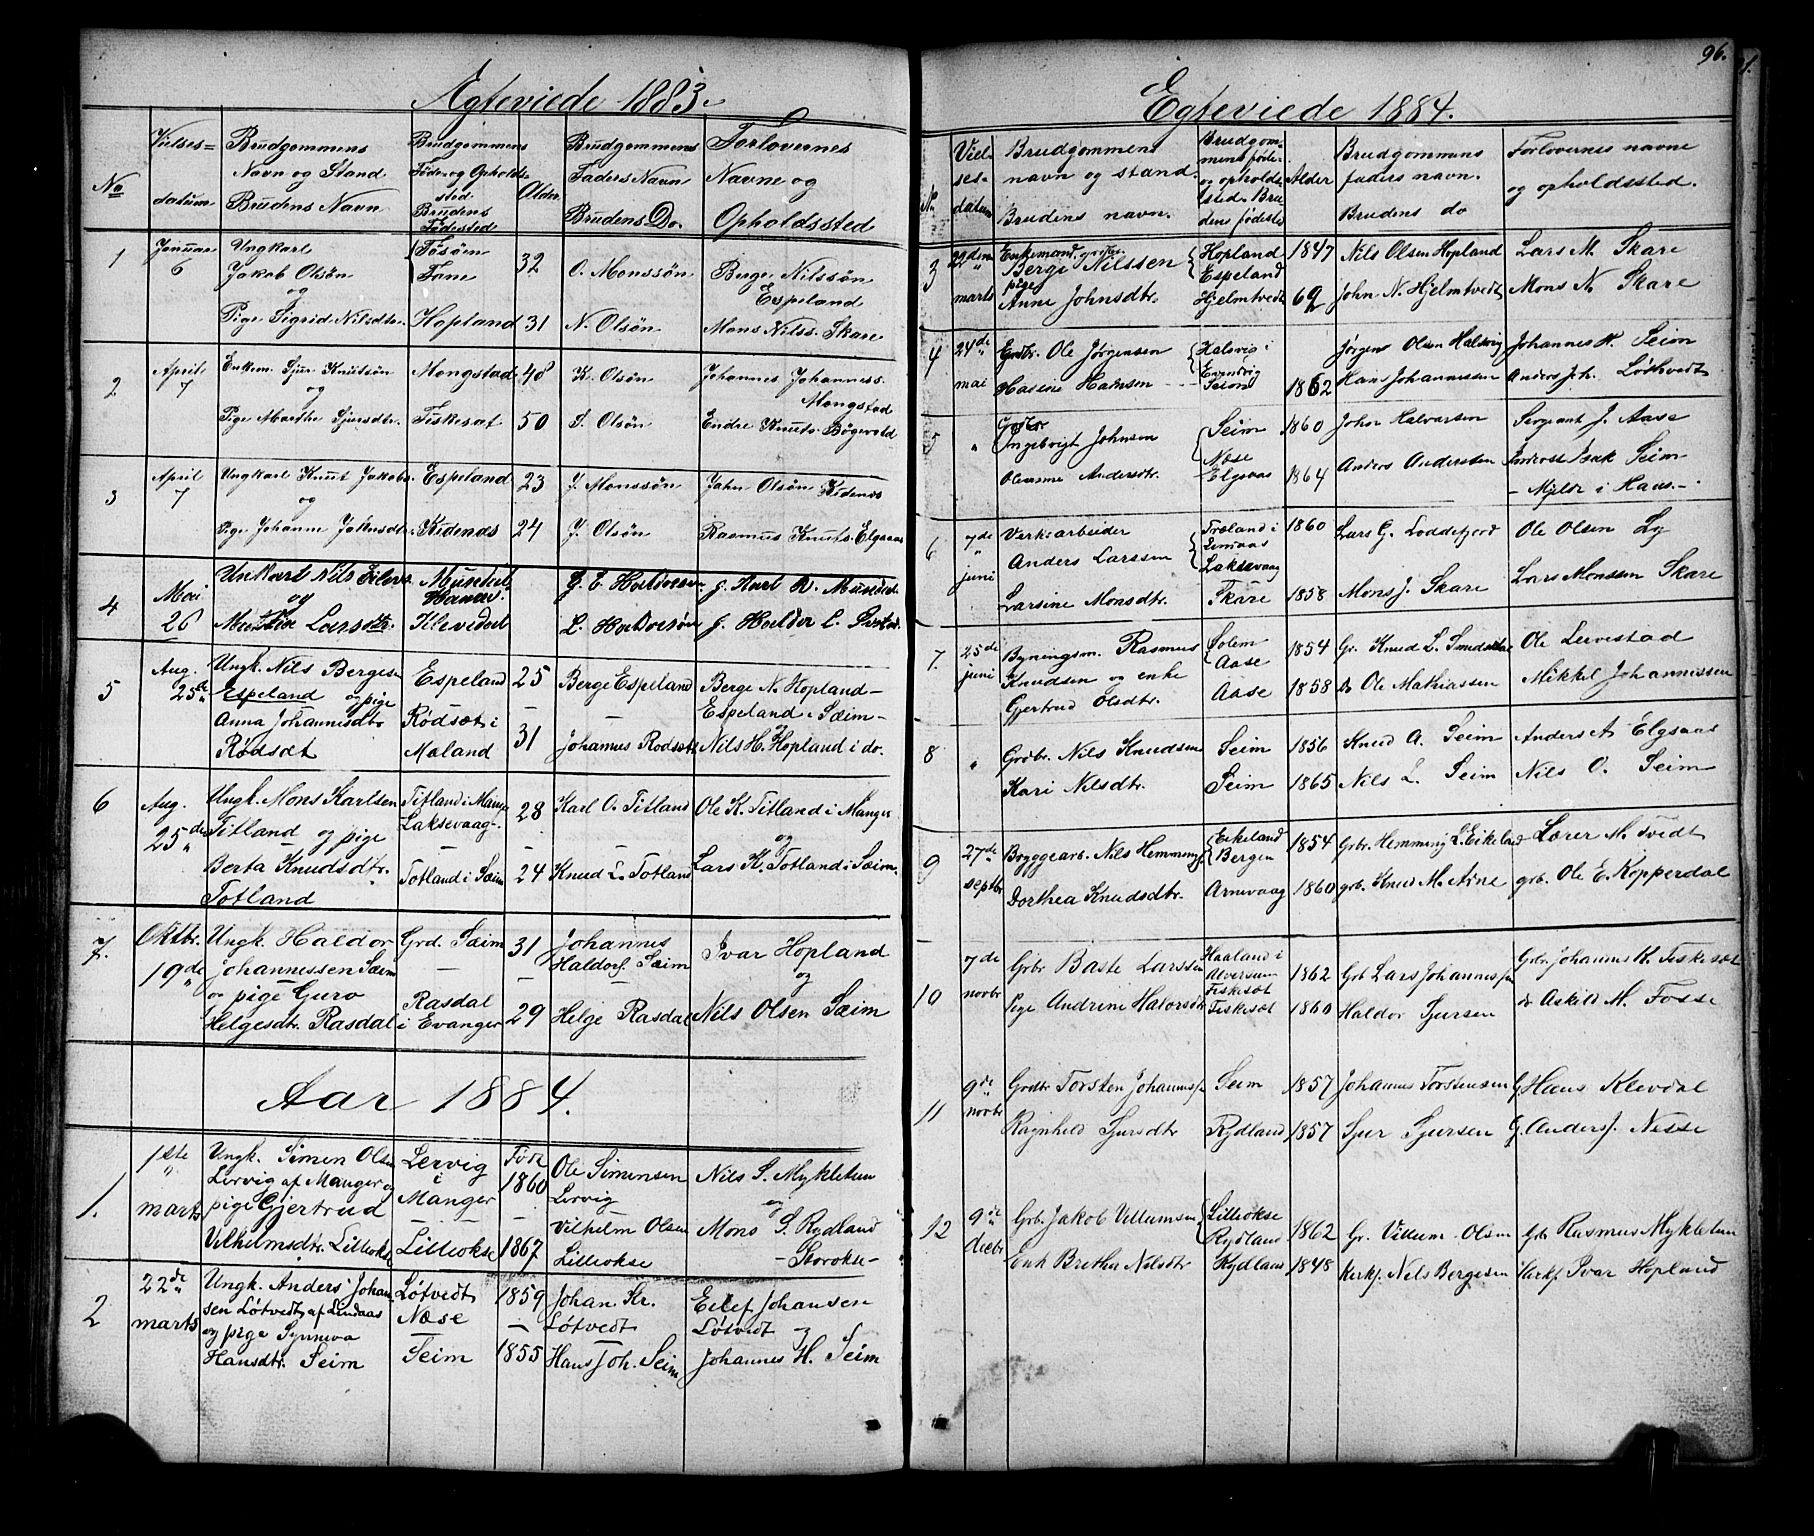 Ægteviede 1883.
No
Vielses=
datum
Brudgommens
Navn og Stand
Brudens Navn
Brudgommens
Føde- og Opholds
sted
Brudens
Fødested
Alder
Brudgommens
Faders Navn
Brudens Do.
Forlovernes
Navne og
Opholdssted
1
Januar
6
Ungkarl
Jakob Olsön
og
Pige Sigrid Nilsdtr.
Fane
Hopland
32
31
O. Monssön
N. Olsön
Berge Nilssön
Espeland
Mons Nilss. Skare
2
April
7
Enkem. Sjur Knutsön
og
Pige Marthe Sjursdtr.
Mongstad
Fiskesæt
48
50
K. Olsön
S. Olsön
Johannes Johanness.
Mongstad
Endre Knuts. Bögevold
3
April
7
Ungkarl Knut Jakobs.
og
Pige Johanne Johnsdtr.
Espeland
Kidenæs
23
24
J. Monssön
J. Olsön
John Olsön Kidenæs
Rasmus Knuts. Elgsaas
4
Mai
26
Unkarl Nils
og
Larsdtr.
5
Aug.
25de
Ungk. Nils Bergesen
Espeland og pige
Anna Johannesdtr.
Rødsæt
Espeland
Rødsæt i
Maland
25
31
Berge Espeland
Johannes Rødsæt
Berge N. Hopland-
Espeland i Sæim-
Nils H. Hopland i do.
6
Aug.
25de
Ungk. Mons Karlsen
Titland og pige
Berta Knudsdtr.
Totland
Titland i Mang.
Laksevaag-
Totland i Sæim
28
24
Karl O. Titland
Knud L. Totland
Ole K. Titland i Manger
og
Lars K. Totland i Sæim
7.
Oktbr.
19de
Ungk. Haldor
Johannessen Sæim
og pige Guro
Helgesdtr. Rasdal
Grd. Sæim
Rasdal
i Evanger
31
29
Johannes
Haldors. Sæim
Helge Rasdal
Ivar Hopland
og
Nils Olsen Sæim
Aar 1884.
1.
1ste
marts
Ungk. Simen Olsen
Lervig af Manger og
pige Gjertrud
Vilhelmsdtr. Lilleokse
Lervig
i
Manger
Lilleokse
Født
1860
1867
Ole Simensen
Lervig
Vilhelm Olsen
Lilleokse
Nils S. Mykletun
og
Mons S. Rydland
-Storokse-
2
22de
marts
Ungk. Anders Johan
sen Løtvedt af Lindaas
og pige Synneva
Hansdtr. Seim
Løtvedt
Næse
Seim
1859
1855
Johan Kr.
Løtvedt
Hans Joh. Seim
Eilef Johansen
Løtvedt
og
Johannes H. Seim
96.
Egteviede 1884.
No
Viel-
ses-
datum
Brudgommens
navn og stand.
Brudens navn.
Brudgom-
mens føde-
og opholds-
sted. Bru
dens fødeste
Alder
Brudgommens
faders navn.
Brudens do
Forlovernes navne
og opholdssted.
3
22den
marts
Enkemand, gaardbr.
Berge Nilssen
pige
Anne Johnsdtr.
Hopland
Espeland
Hjelmtvedt
1847
62
Nils Olsen Hopland
John N. Hjelmtvedt
Lars M. Skare
Mons N. Skare
4
24de
mai
Grdbr. Ole Jørgensen
Hasine Hansen
Halsvig i
Eyndvig
Seim
1862
Jørgen Olsen Halsvig
Hans Johannessen
Johannes H. Seim
Anders Joh. Løthvedt
5
"
Grdbr.
Ingebrigt Johnsen
Olianne Andersdtr.
Seim
Næse
Elgsaas
1860
1864
John Halvorsen
Anders Andersen
Sergeant J. Aase
Isak Seim
- Mjelde i Haus -
6
7de
juni
Verksarbeider
Anders Larssen
Larsine Monsdtr.
Træland i
Lindaas
Laksevaag
Skare
1860
1858
Lars G. Loddefjord
Mons J. Skare
Ole Olsen Ly
Lars Monssen Skare
7
25de
juni
Bygningsm. Rasmus
Knudsen og enke
Gjertrud Olsdtr.
Solem
Aase
Aase
1854
1858
Gr. Knud L.
Do Ole Mathiassen
Ole Leivestad
Mikkel Johannissen
8
"
Grdbr. Nils Knudsen
Kari Nilsdtr.
Seim
Seim
1856
1865
Knud A. Seim
Nils L. Seim
Anders A Elgsaas
Nils O. Seim
9
27de
septbr
Byggearb. Nils Hemmings
Dorthea Knudsdtr.
Eikeland
Bergen
Arnevaag
1854
1860
Grbr. Hemming L. Eikeland
grb. Knud M. Arne
Lærer M. Tvedt
grb. Ole E. Kopperdal
10
7de
novbr
Grbr Baste Larssen
Pige Andrine Halorsdtr
Haaland i
Alversum
Fiskesæt
Fiskesæt
1862
1860
Grb Lars Johannessen
Haldor Sjursen
Grbr. Johannes K. Fiskesæt
do Askild M. Fosse
11
9de
novbr
Grdbr Torsten Johanness.
Ragnhild Sjursdtr
Seim
Rydland
1857
1857
Johannes Torstensen
Sjur Sjursen
G. Hans Klevdal
G. Anders J. Nesse
12
9de
decbr
Grb. Jakob Villumsen
Enk Bretha Nilsdtr
Lilleokse
Rydland
Rydland
1862
1848
Gr. Villum Olsen
Kirks. Nils Bergesen
Gdr Rasmus Mykletun
Kirks. Ivar Hopland